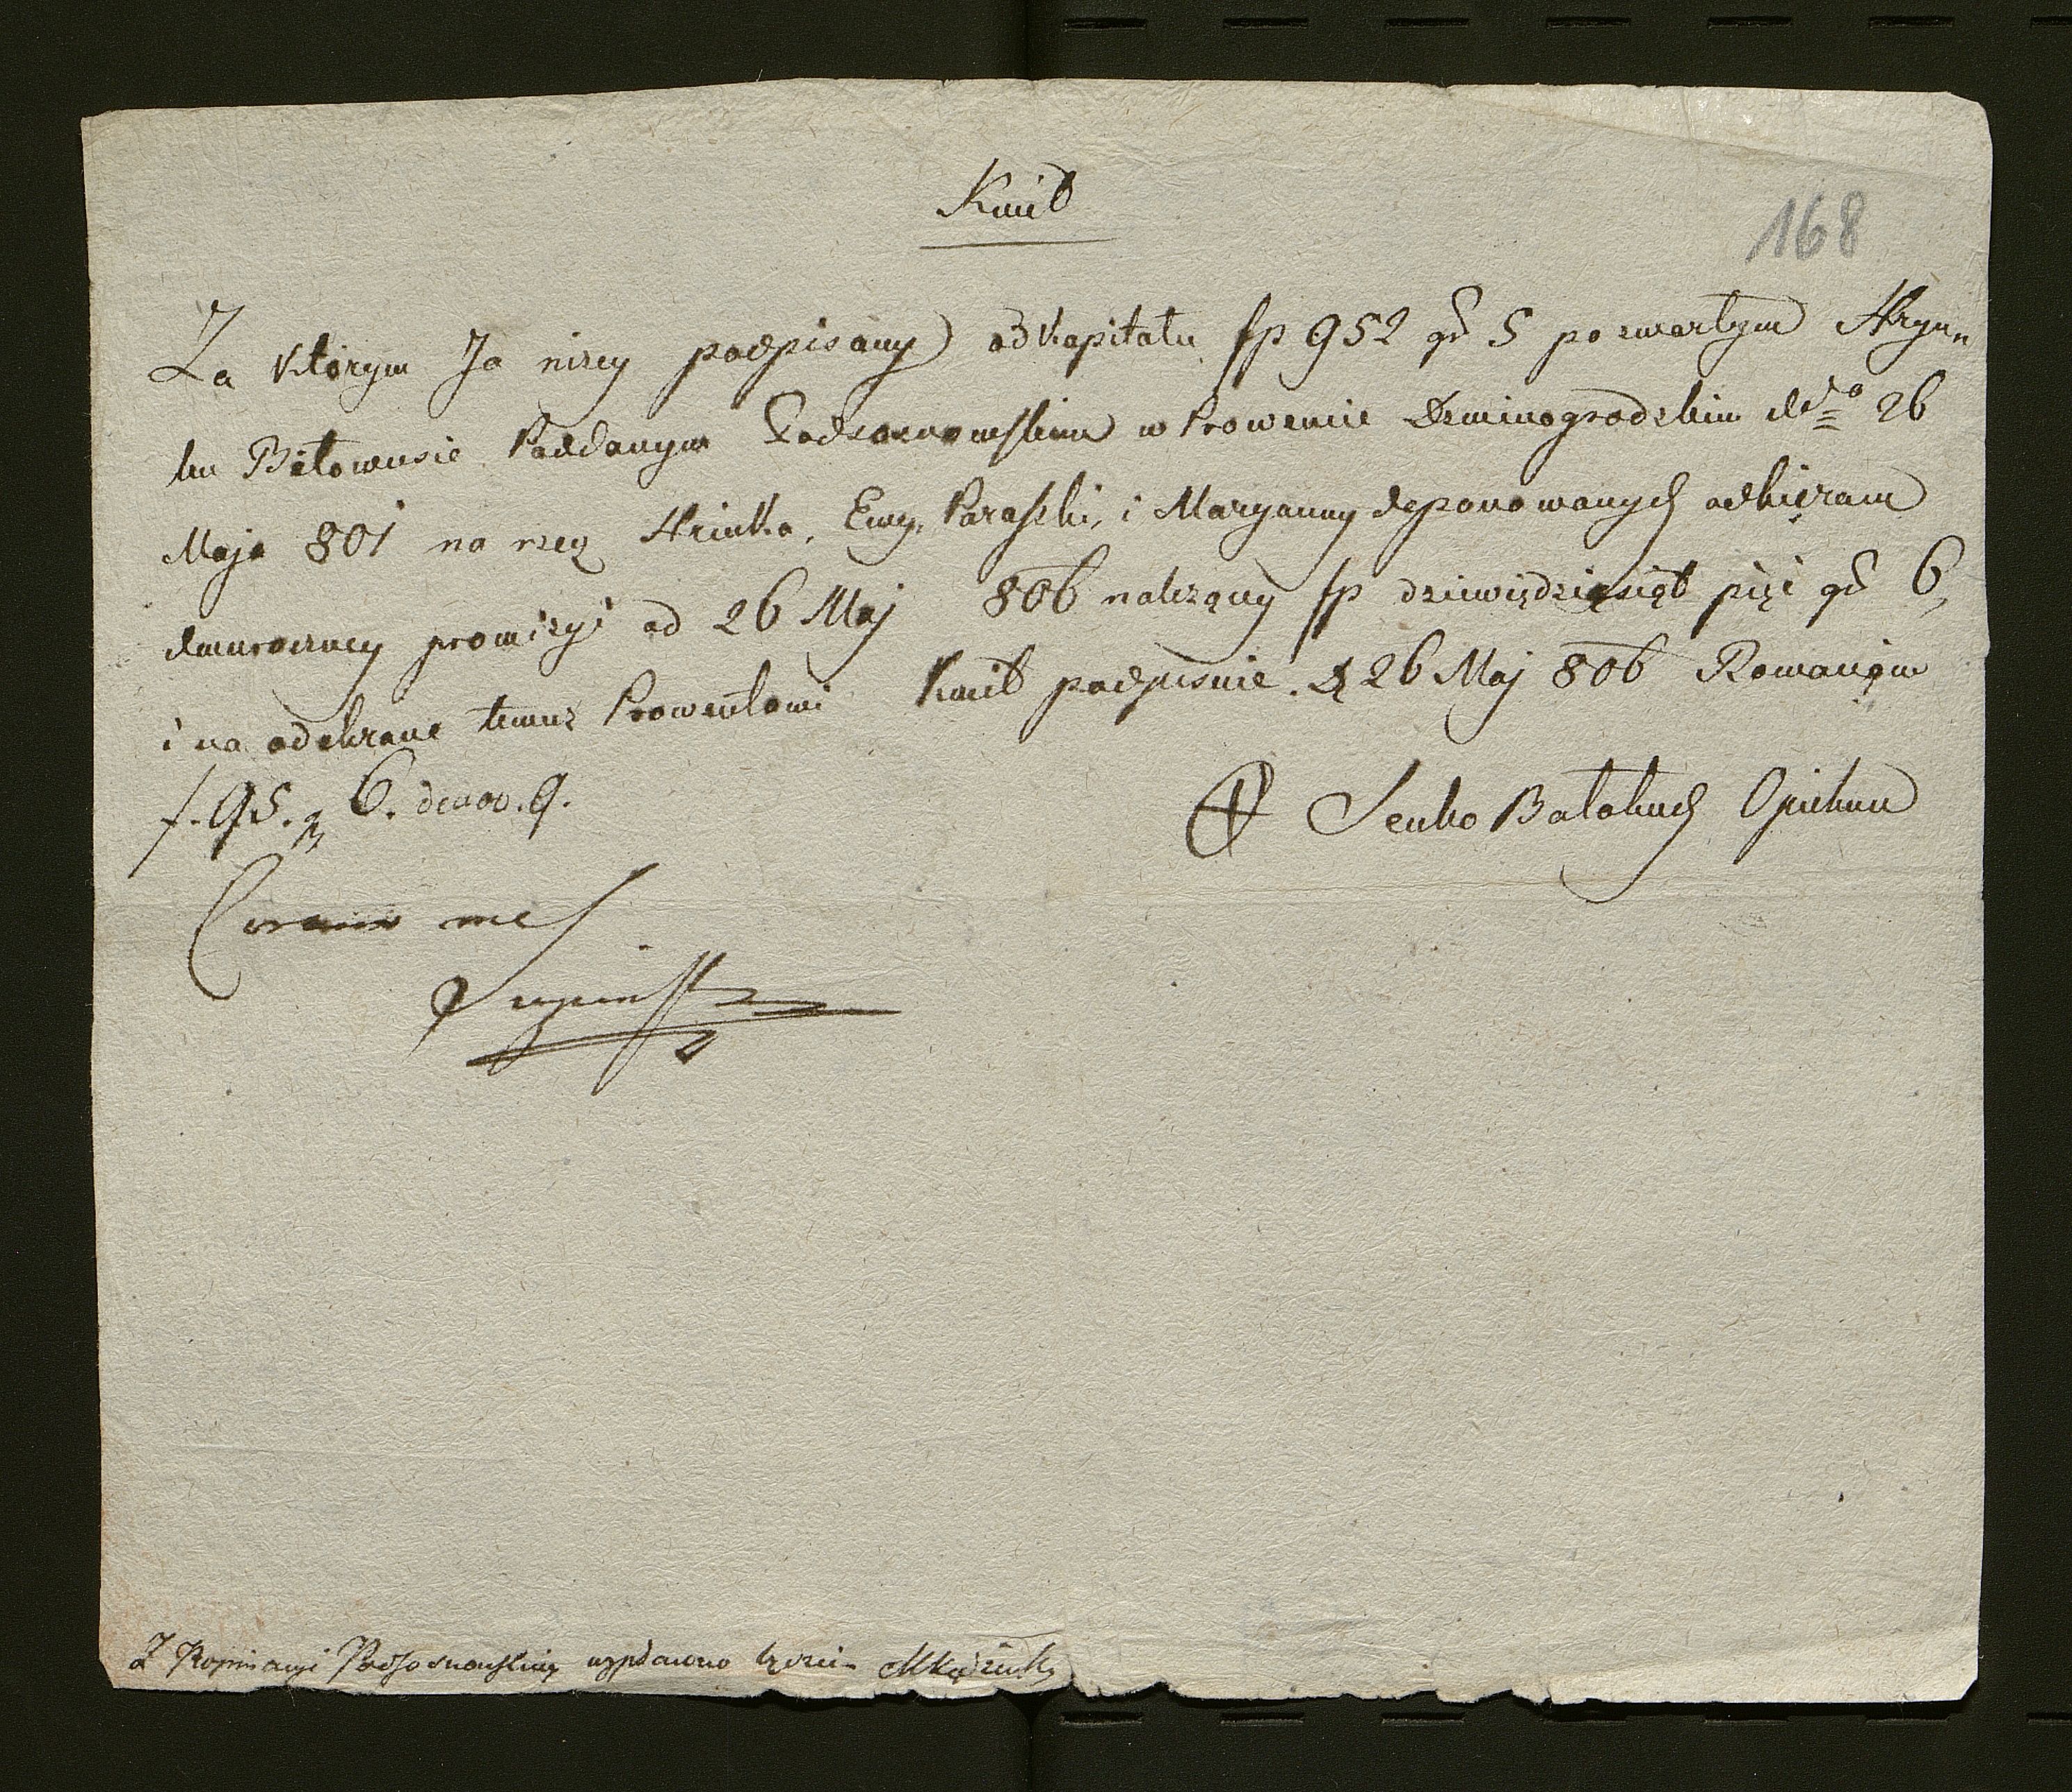 Kwit
168
Za ktorym Ja nizey podpisany od kapitału fp 952 gr 5 po zmarłym Hryn„
ku Bełowusie Poddanym Podsosnowskim w Prowencie Dzwinogrodzkim dto 26
Maja 801 na rzeż Hrinka, Ewy, Paraszki, i Maryanny deponowanych odbieram
dwuroczney prowizyi od 26 Maj 806 należący fp dziewiędziesiąt pięć gr 6,
i na odebrane temuz Prowentowi Kwit podpisuie. D 26 Maj 806 Romanów
f. 95. gr 6. denar. 9.
Senko Bałabuch Opiekun
Coram me
Z Propinacyi Podsosnowskiey wypłacono